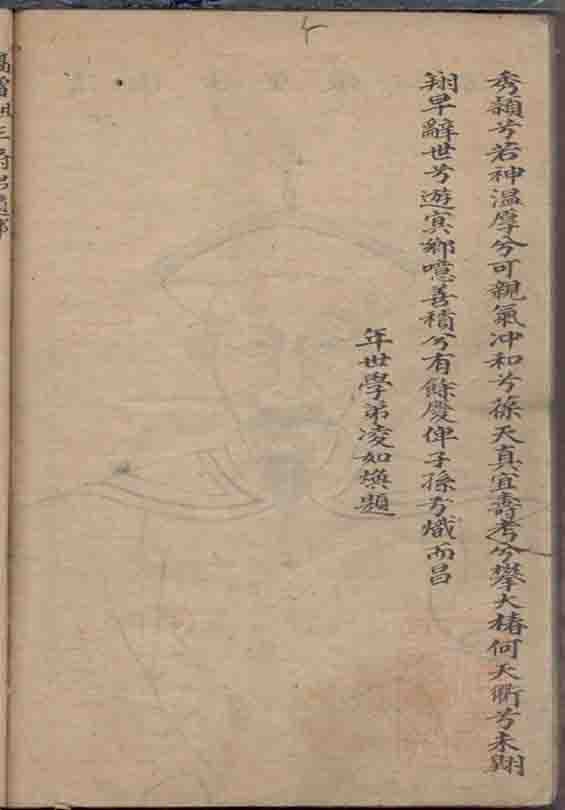 秀穎兮若神溫厚兮可親氣冲和兮葆天真宜壽考兮擧大椿何天衢兮未翔
翔早辭世兮遊冥鄉噫善積兮有餘慶俾子孫兮熾而昌
年世學弟凌如煥題